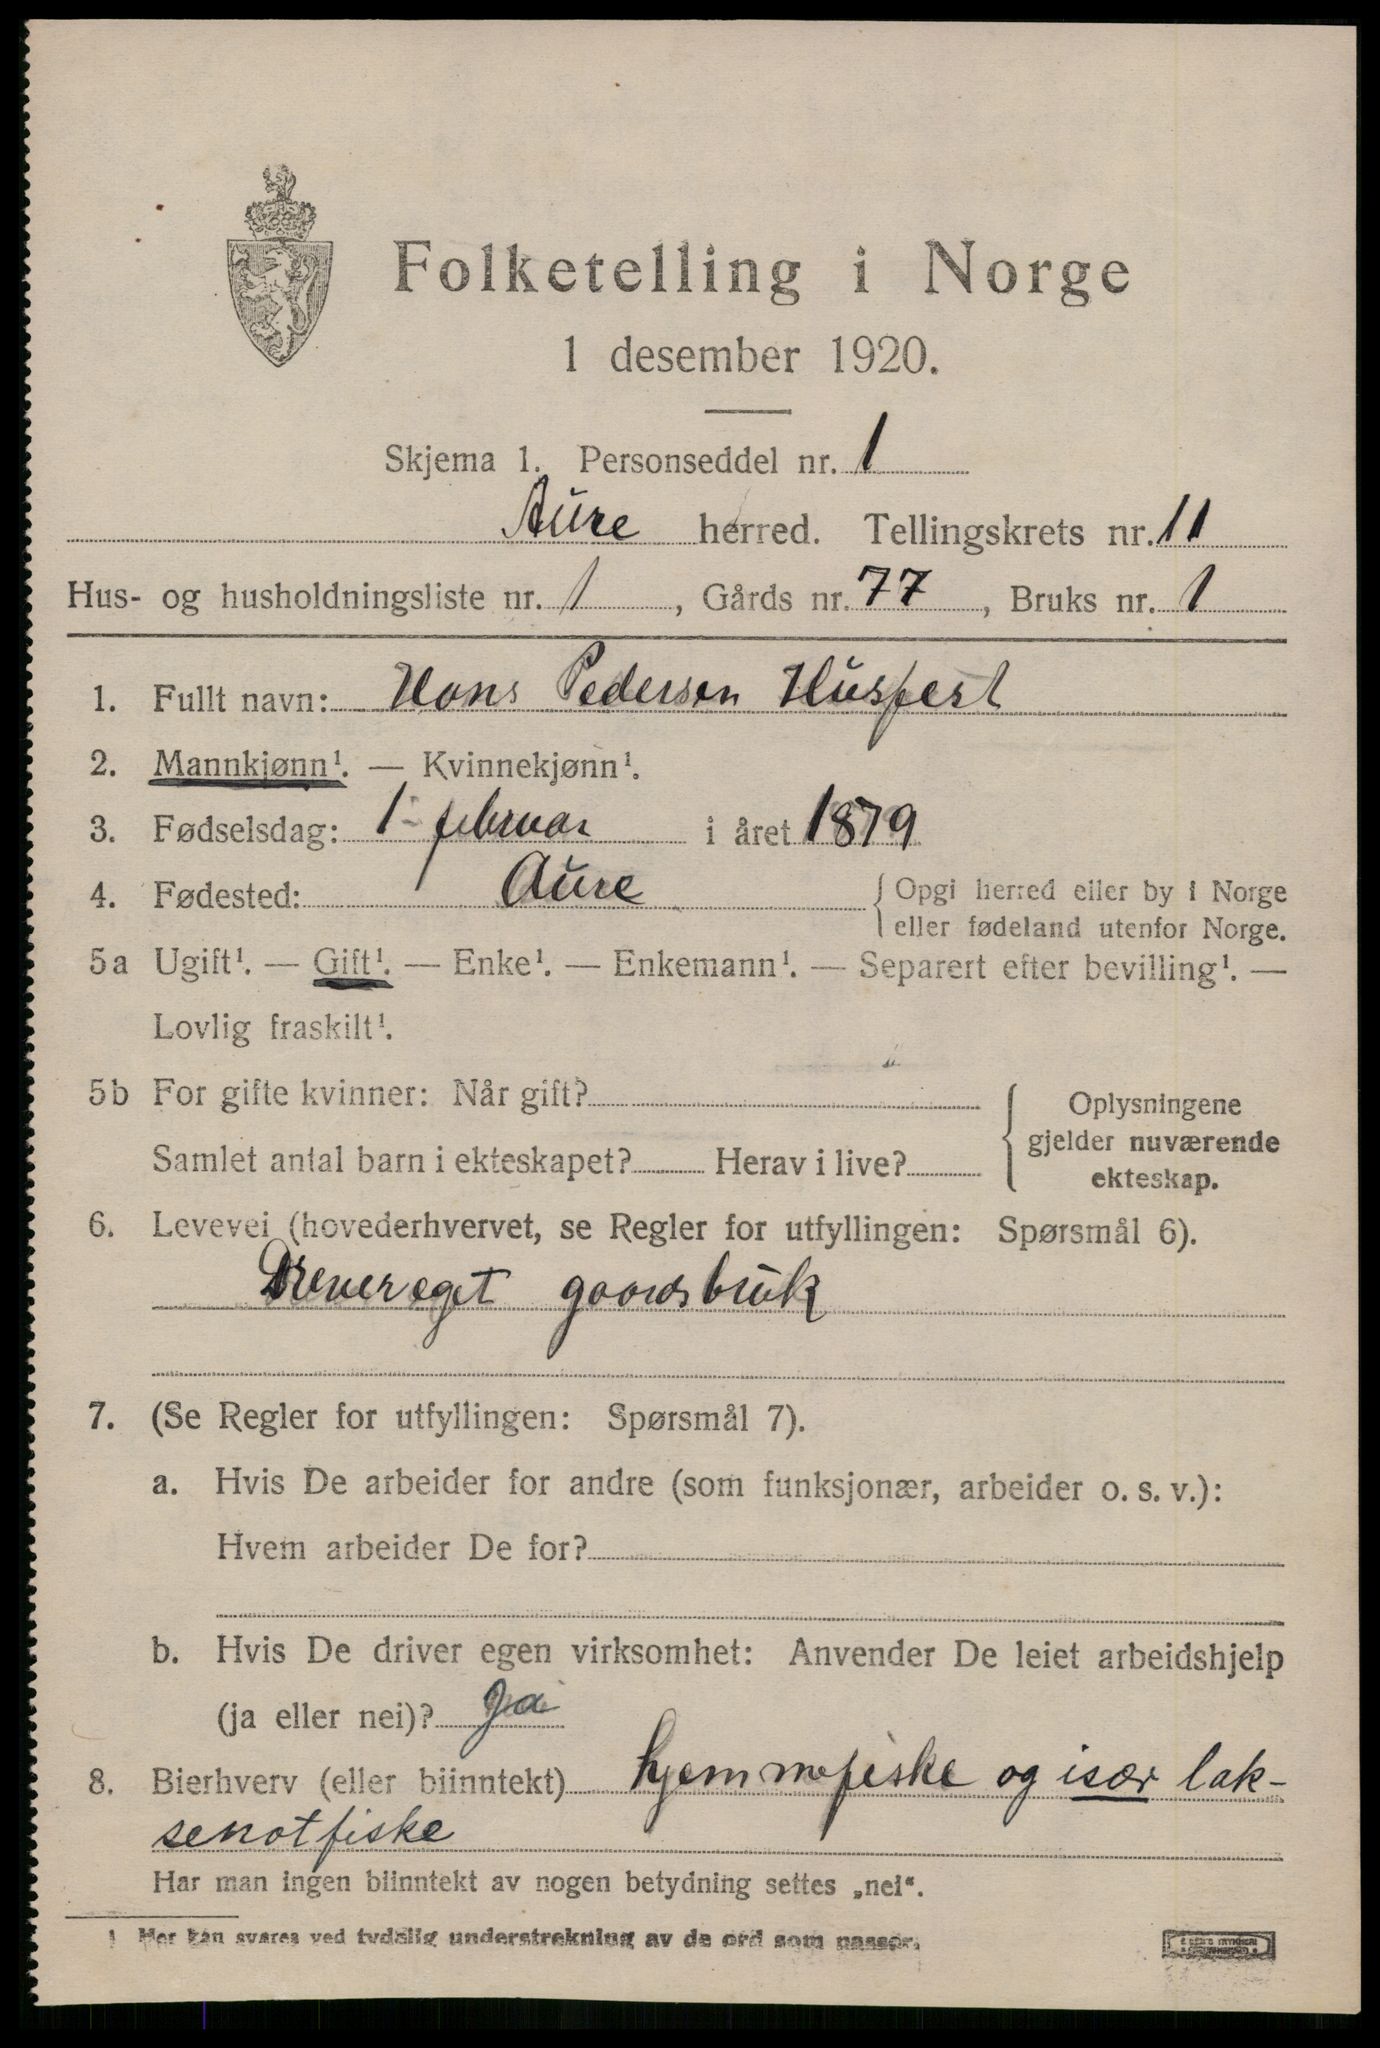 Folketelling i Norge
1 desember 1920.
Skjema 1. Personseddel nr. 1
Aure herred. Tellingskrets nr. 11
Hus- og husholdningsliste nr. 1, Gårds nr. 77, Bruks nr. 1
1. Fullt navn: Hans Pedersen Husfest
2. Mannkjønn¹. — Kvinnekjønn¹.
3. Fødselsdag: 1 februar i året 1879
4. Fødested: Aure { Opgi herred eller by i Norge
eller fødeland utenfor Norge.
5a Ugift¹. — Gift¹. — Enke¹. — Enkemann¹. — Separert efter bevilling¹. —
Lovlig fraskilt¹.
5b For gifte kvinner: Når gift?
Samlet antal barn i ekteskapet? Herav i live?
Oplysningene
gjelder nuværende
ekteskap.
6. Levevei (hovederhvervet, se Regler for utfyllingen: Spørsmål 6).
Drever eget gaardsbruk
7. (Se Regler for utfyllingen: Spørsmål 7).
a. Hvis De arbeider for andre (som funksjonær, arbeider o. s. v.):
Hvem arbeider De for?
b. Hvis De driver egen virksomhet: Anvender De leiet arbeidshjelp
(ja eller nei)? Ja
8. Bierhverv (eller biinntekt) hjemmefiske og især lak-
senotfiske
Har man ingen biinntekt av nogen betydning settes „nei“.
1 Her kan svares ved tydelig understrekning av de ord som passer.